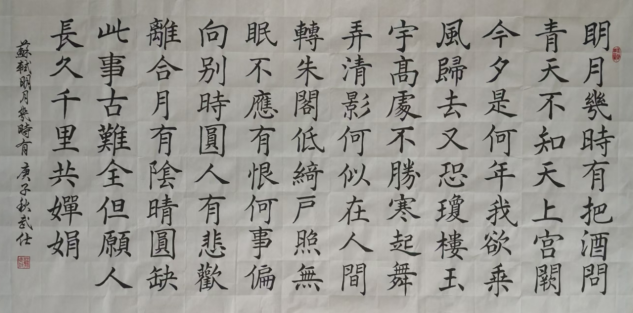 明月幾時有把酒問
青天不知天上宮闕
今夕是何年我欲乘
風歸去又恐瓊樓玉
宇高處不勝寒起舞
弄清影何似在人間
轉朱閣低綺戶照無
眠不應有恨何事偏
向别時圓人有悲歡
離合月有陰晴圓缺
此事古難全但願人
長久千里共嬋娟
蘇軾明月幾時有 庚子秋武仕